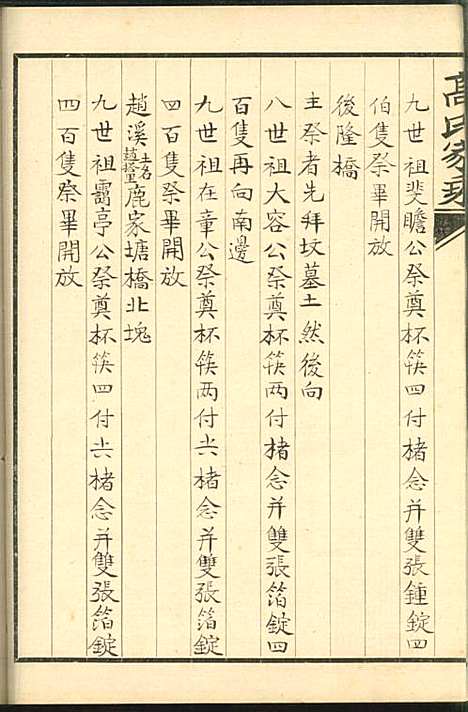 高氏家
九世祖斐瞻公祭奠杯筷四付楮念并雙張錘錠四
伯隻祭畢開放
後隆橋
主祭者先拜坟墓土然後向
八世祖大容公祭奠杯筷两付楮念并雙張箔錠四
百隻再向南邊
九世祖在章公祭奠杯筷两付尖楮念并雙張箔錠
四百隻祭畢開放
趙溪土名鹿家塘橋北塊
九世祖靄亭公祭奠杯筷四付尖楮念并雙張箔錠
四百隻祭畢開放